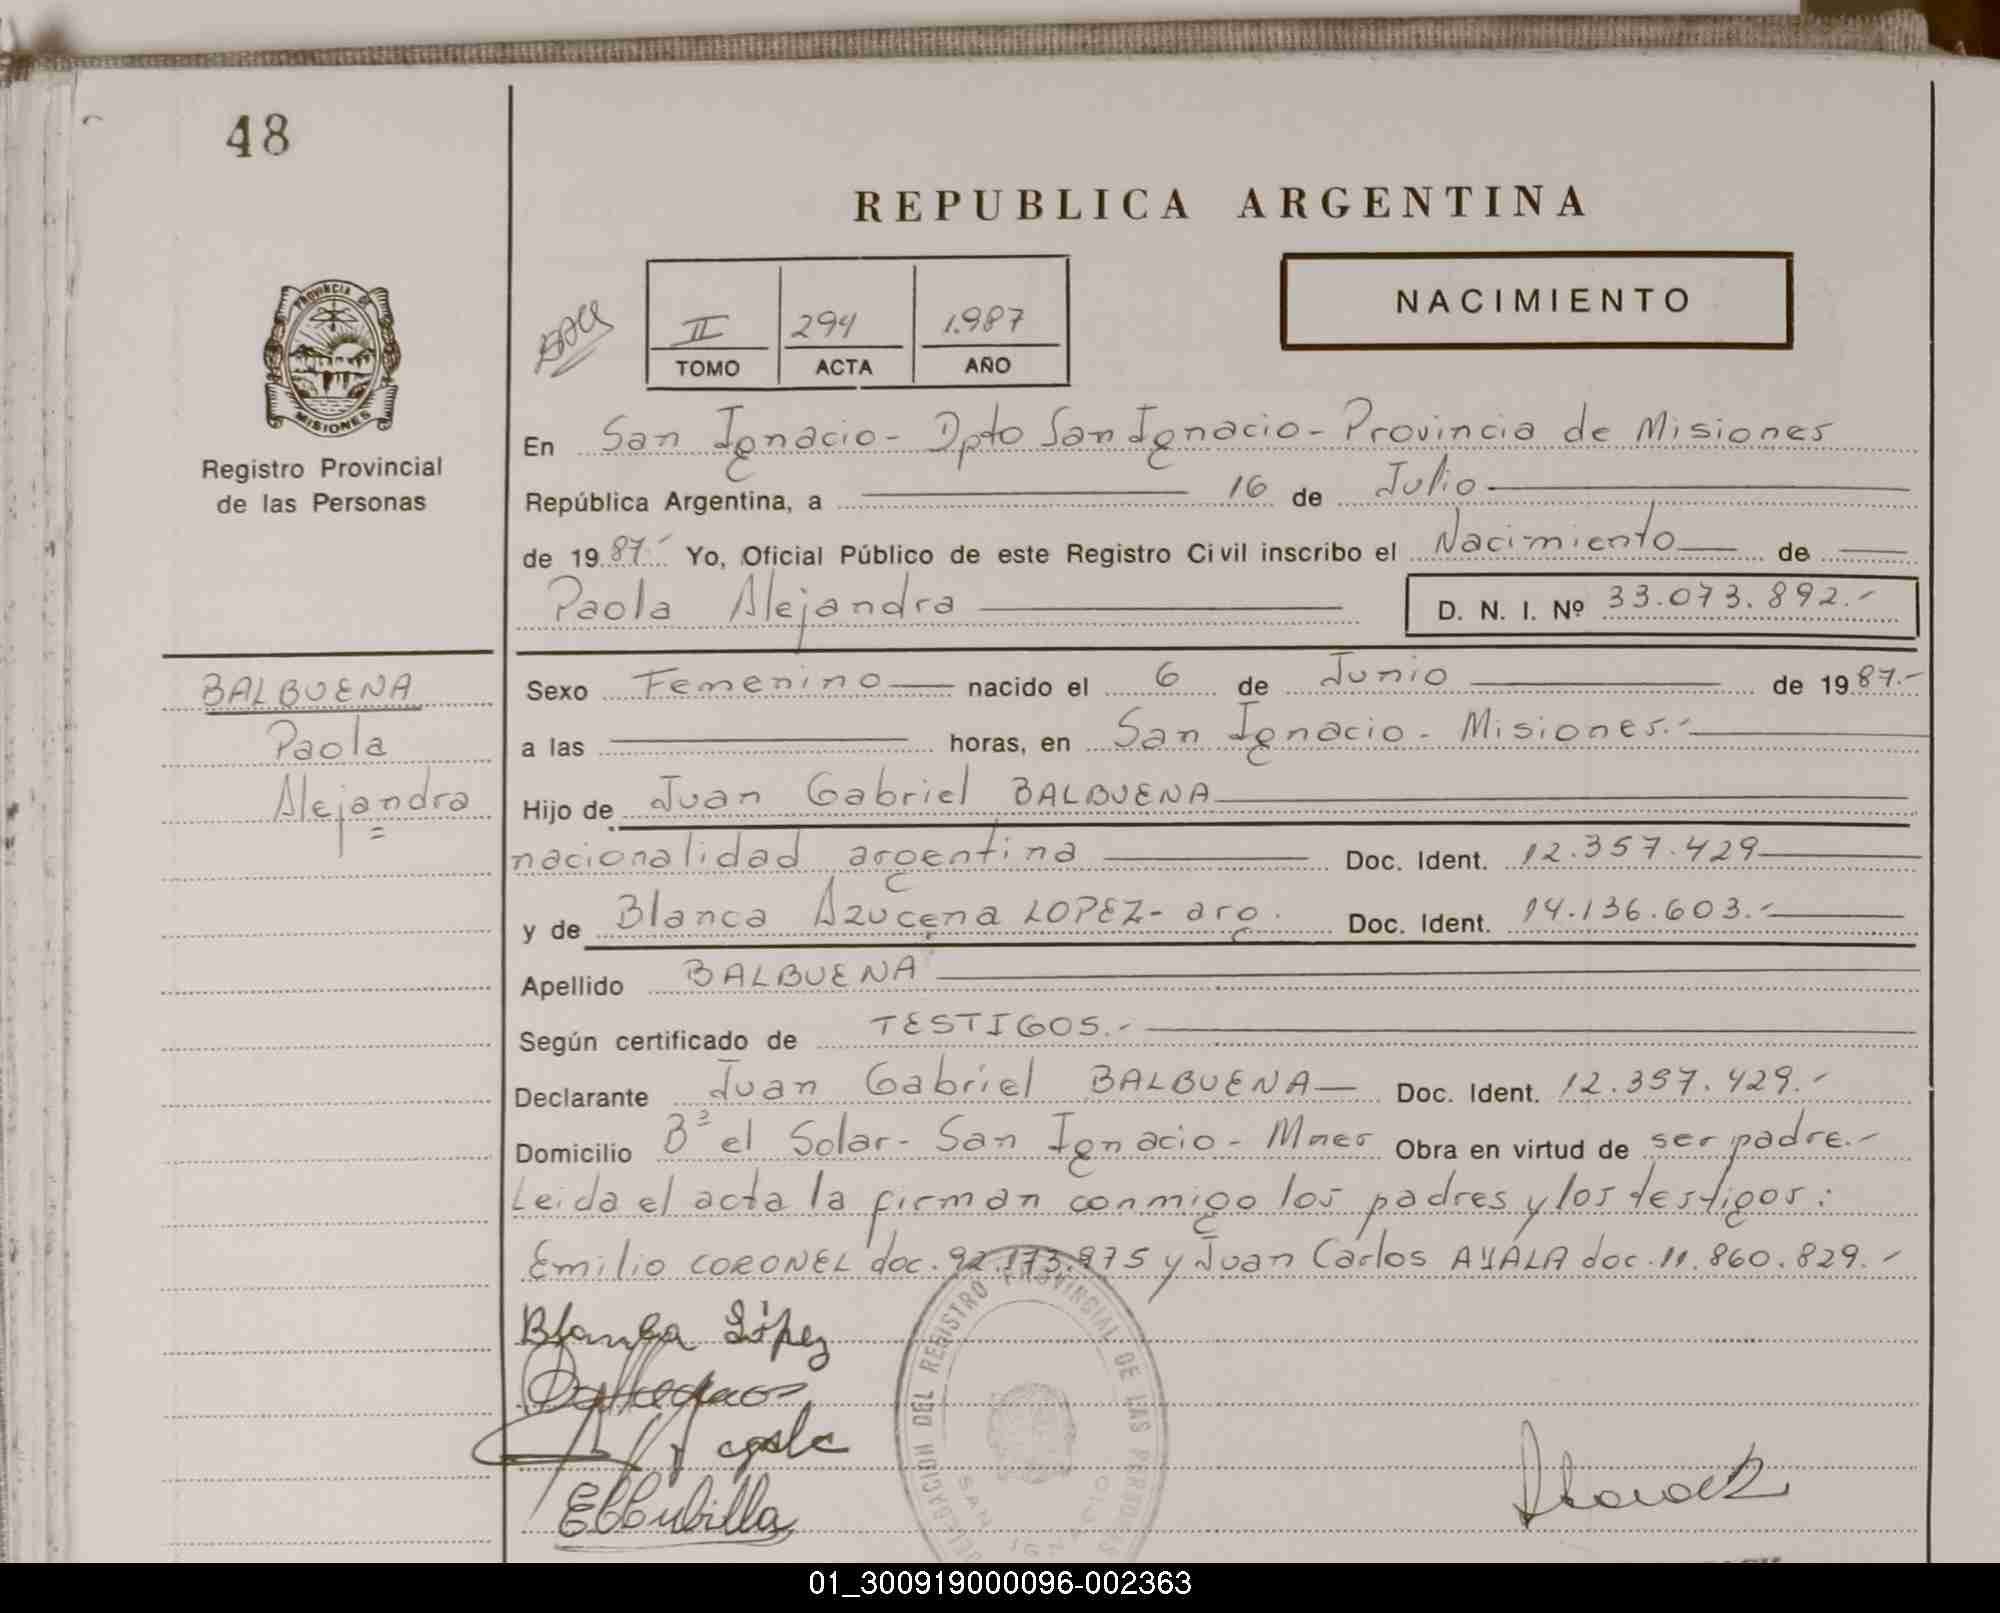 48
REPUBLICA ARGENTINA
PROVINCIA DE
MISIONES
Registro Provincial
de las Personas
II 294 1.987
TOMO ACTA AÑO
NACIMIENTO
En San Ignacio - Dpto San Ignacio - Provincia de Misiones
República Argentina, a 16 de Julio
de 1987.- Yo, Oficial Público de este Registro Civil inscribo el Nacimiento de
Paola Alejandra D. N. I. Nº 33.073.892.-
BALBUENA
Paola
Alejandra
Sexo Femenino nacido el 6 de Junio de 1987.-
a las horas, en San Ignacio - Misiones.-
Hijo de Juan Gabriel BALBUENA
nacionalidad argentina Doc. Ident. 12.357.429
y de Blanca Azucena LOPEZ - arg. Doc. Ident. 14.136.603.-
Apellido BALBUENA
Según certificado de TESTIGOS.-
Declarante Juan Gabriel BALBUENA Doc. Ident. 12.357.429.-
Domicilio Bº el Solar - San Ignacio - Mnes Obra en virtud de ser padre.-
Leida el acta la firman conmigo los padres y los testigos:
Emilio CORONEL doc. 92.173.975 y Juan Carlos AYALA doc. 11.860.829.-
Blanca López
DELEGACION DEL REGISTRO PROVINCIAL DE LAS PERSONAS
SAN IGNACIO
01_300919000096-002363